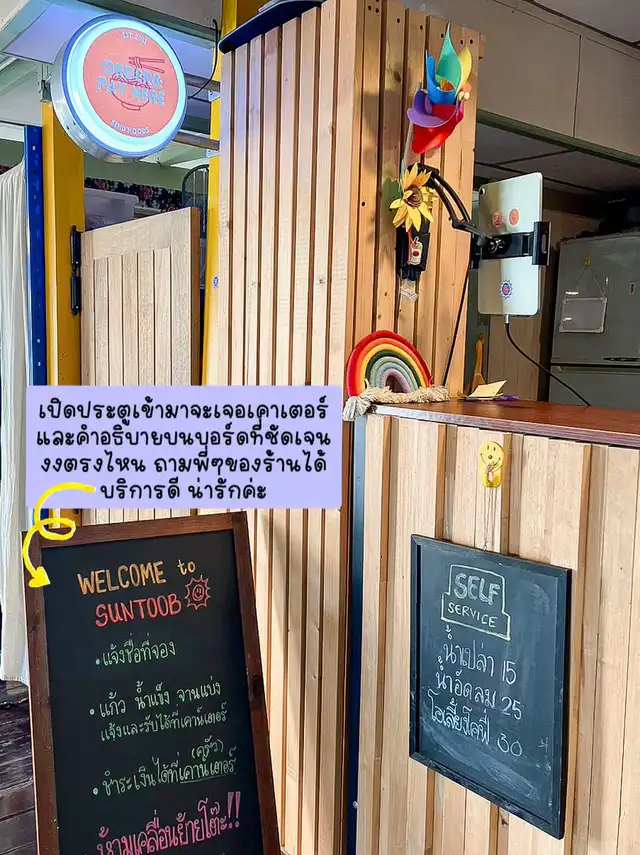 EST. 2021
ORDER &
PAY HERE
SEND NOODS
เปิดประตูเข้ามาจะเจอเคาเตอร์
และคำอธิบายบนบอร์ดที่ชัดเจน
งงตรงไหน ถามพี่ๆของร้านได้
บริการดี น่ารักค่ะ
WELCOME to
SUNTOOB
• แจ้งชื่อที่จอง
• แก้ว น้ำแข็ง จานแบ่ง
แจ้งและรับได้ที่เคาน์เตอร์
(ครัว)
• ชำระเงินได้ที่เคาน์เตอร์
ห้ามเคลื่อนย้ายโต๊ะ!!
SELF
SERVICE
น้ำเปล่า 15
น้ำอัดลม 25
โอเลี้ยงโคฟี่ 30